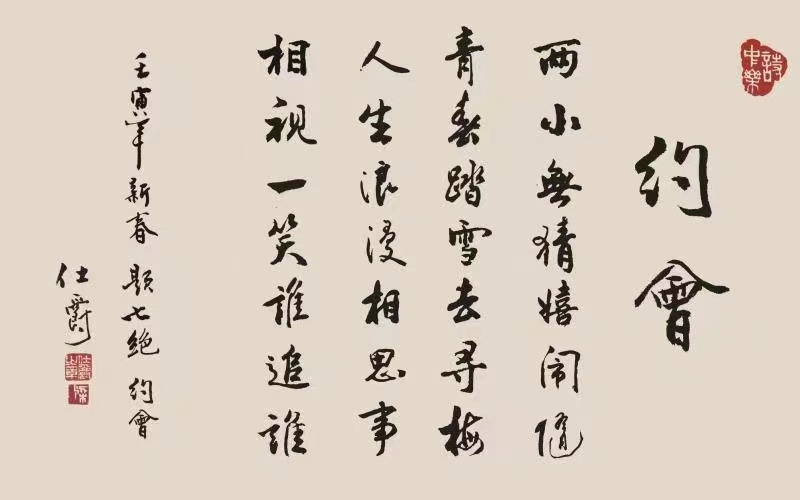 詩中樂
約會
兩小無猜嬉鬧隨
青春踏雪去尋梅
人生浪漫相思事
相視一笑誰追誰
壬寅年新春 題七絕 約會
仕爵